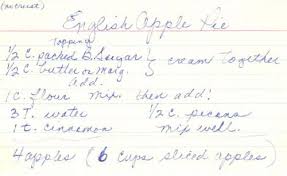 (no crust)
English Apple Pie
Topping
1/2 C. packed B. Sugar } cream together
1/2 C. butter or marg.
add.
1 C. flour mix. then add!
3 T. water 1/2 C. pecans
1 t. cinnamon mix well.
4 apples (6 cups sliced apples)